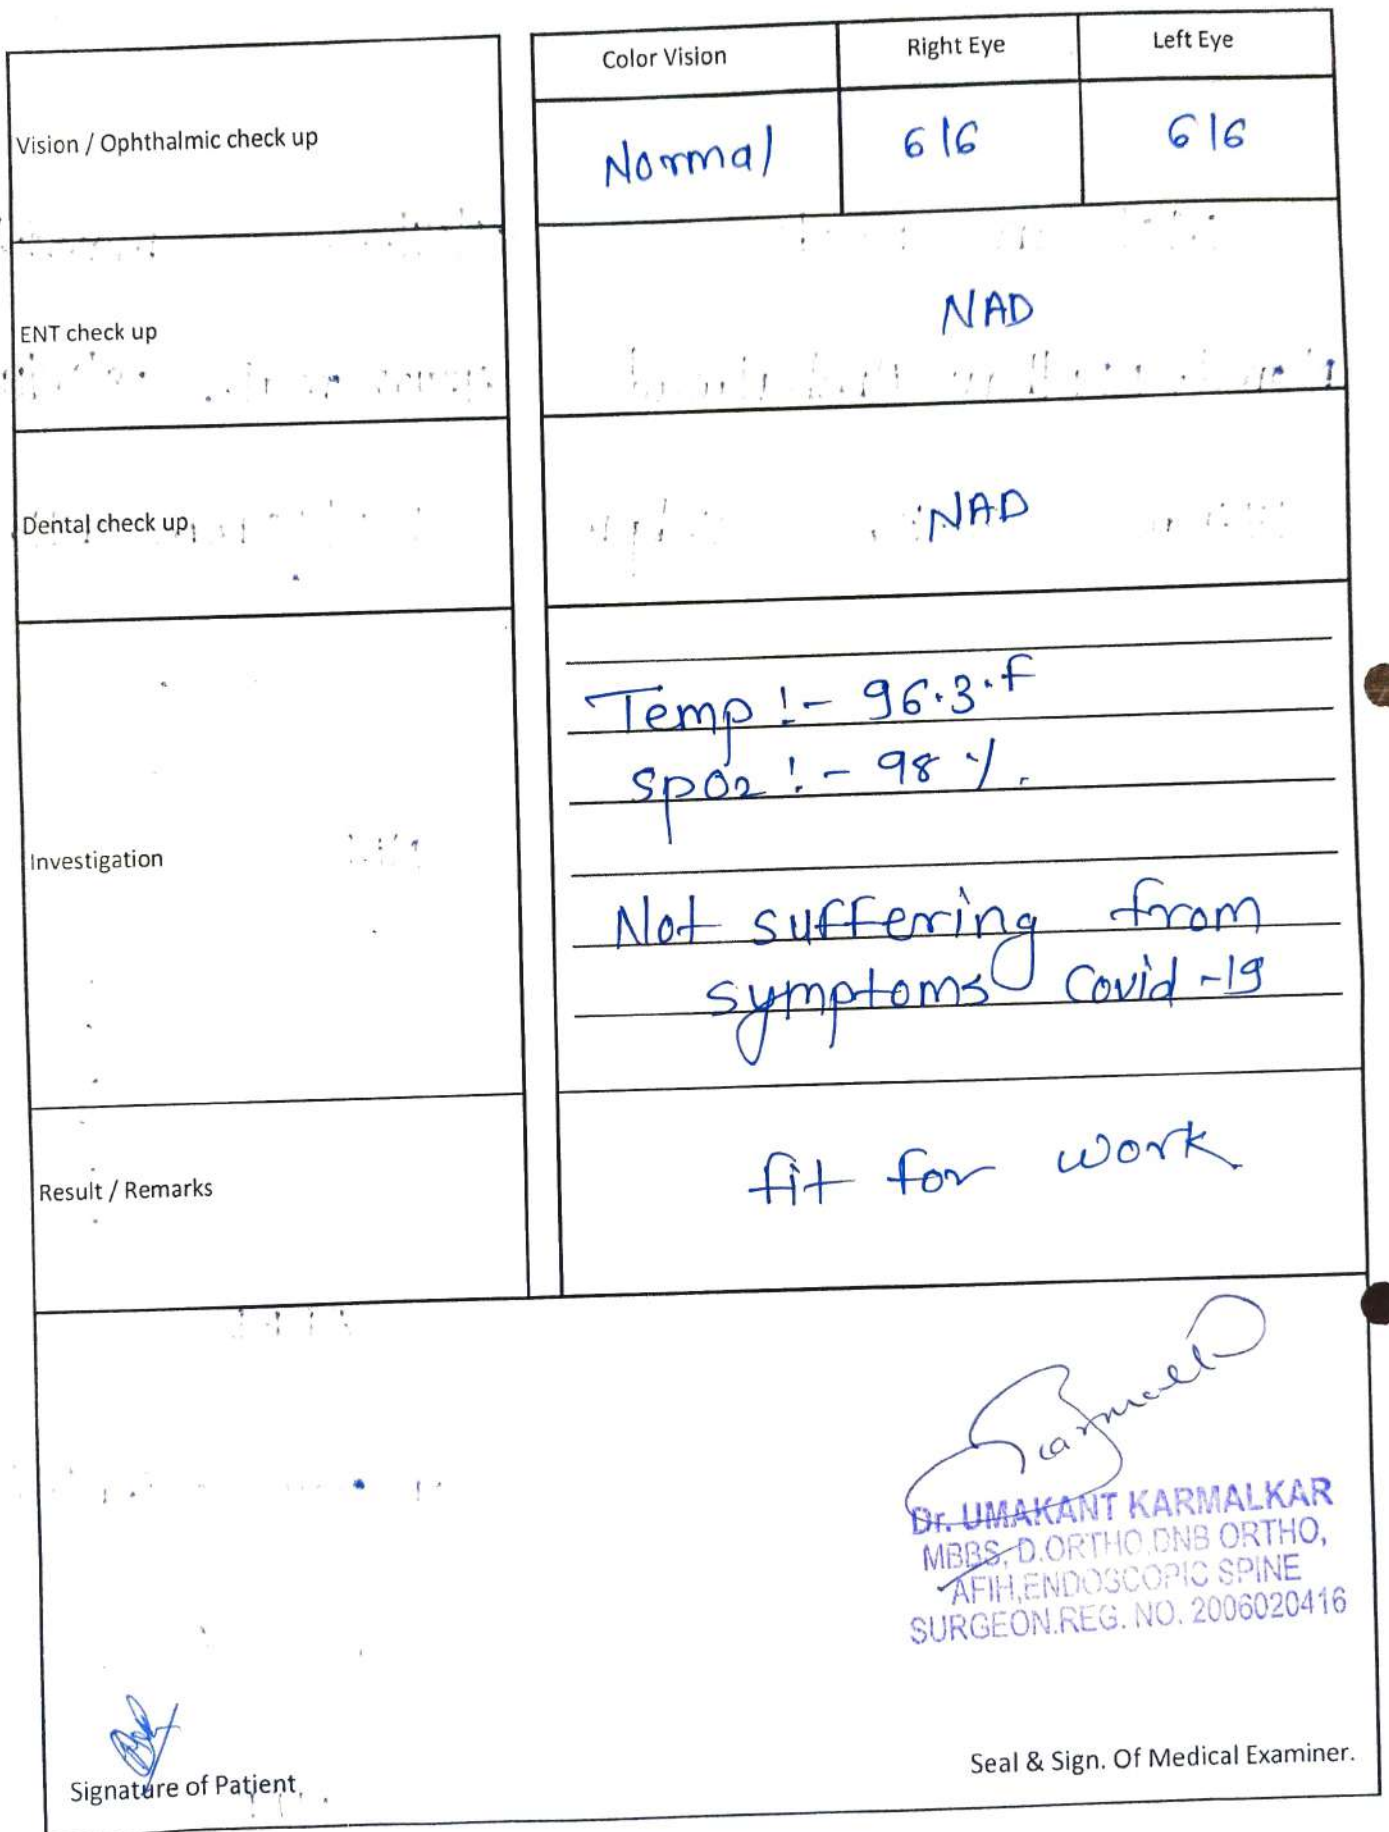 Color Vision
Right Eye
Left Eye
Vision / Ophthalmic check up
Normal
6/6
6/6
ENT check up
NAD
Dental check up
NAD
Investigation
Temp :- 96.3.f
SpO2 :- 98 %.
Not suffering from
symptoms Covid -19
Result / Remarks
fit for work
Dr. UMAKANT KARMALKAR
MBBS, D.ORTHO,DNB ORTHO,
AFIH,ENDOSCOPIC SPINE
SURGEON.REG. NO. 2006020416
Signature of Patient
Seal & Sign. Of Medical Examiner.